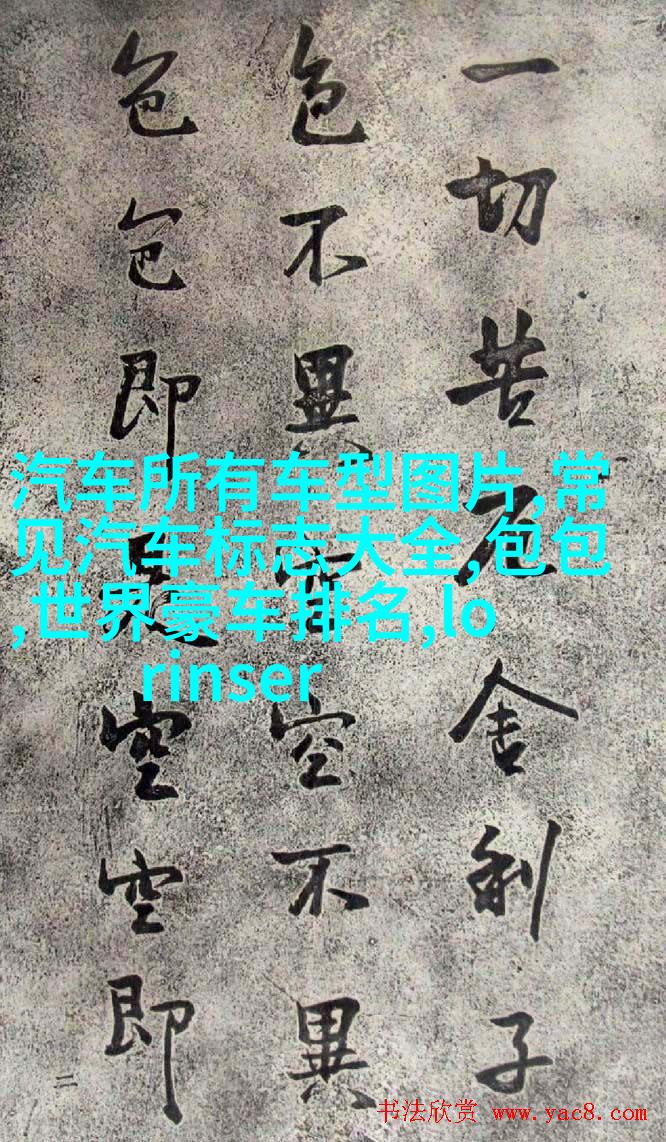 一切苦厄舍利子
色不異空空不異
色色即是空空即
二
汽车所有车型图片,常
见汽车标志大全,包包
,世界豪车排名,lo
rinser
书法欣赏 www.yac8.com